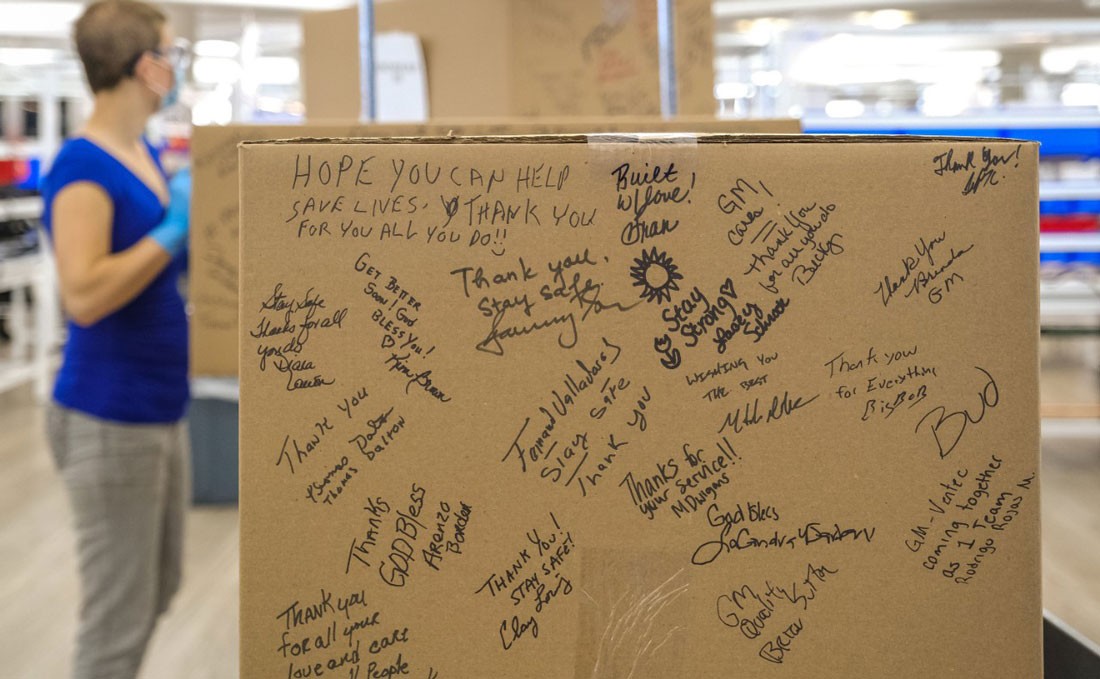 HOPE YOU CAN HELP
SAVE LIVES. THANK YOU
FOR YOU ALL YOU DO!!
Built
w/love!
Fran
GM
cares!
Thank you
for all you do
Becky
Thank You!
Thank You
Brenda
GM
GET BETTER
Soon! God
BLESS YOU!
Kim
Thank you.
Stay safe.
Stay
Strong
Stay Safe
Thanks for all
you do
WISHING YOU
THE BEST
Thank you
for Everything
BIGBOB
Bud
Fernand Valladares
Stay Safe
Thank you
Thank You
Thomas Dalton
Thanks for
your service!!
MDWiggins
God Bless
GM-Ventec
coming together
as 1 Team
Rodrigo Rojas M.
Thanks
GOD Bless
Arenzo
Border
THANK YOU!
STAY SAFE!
Clay
GM
Quality
Thank you
for all your
love and care
People